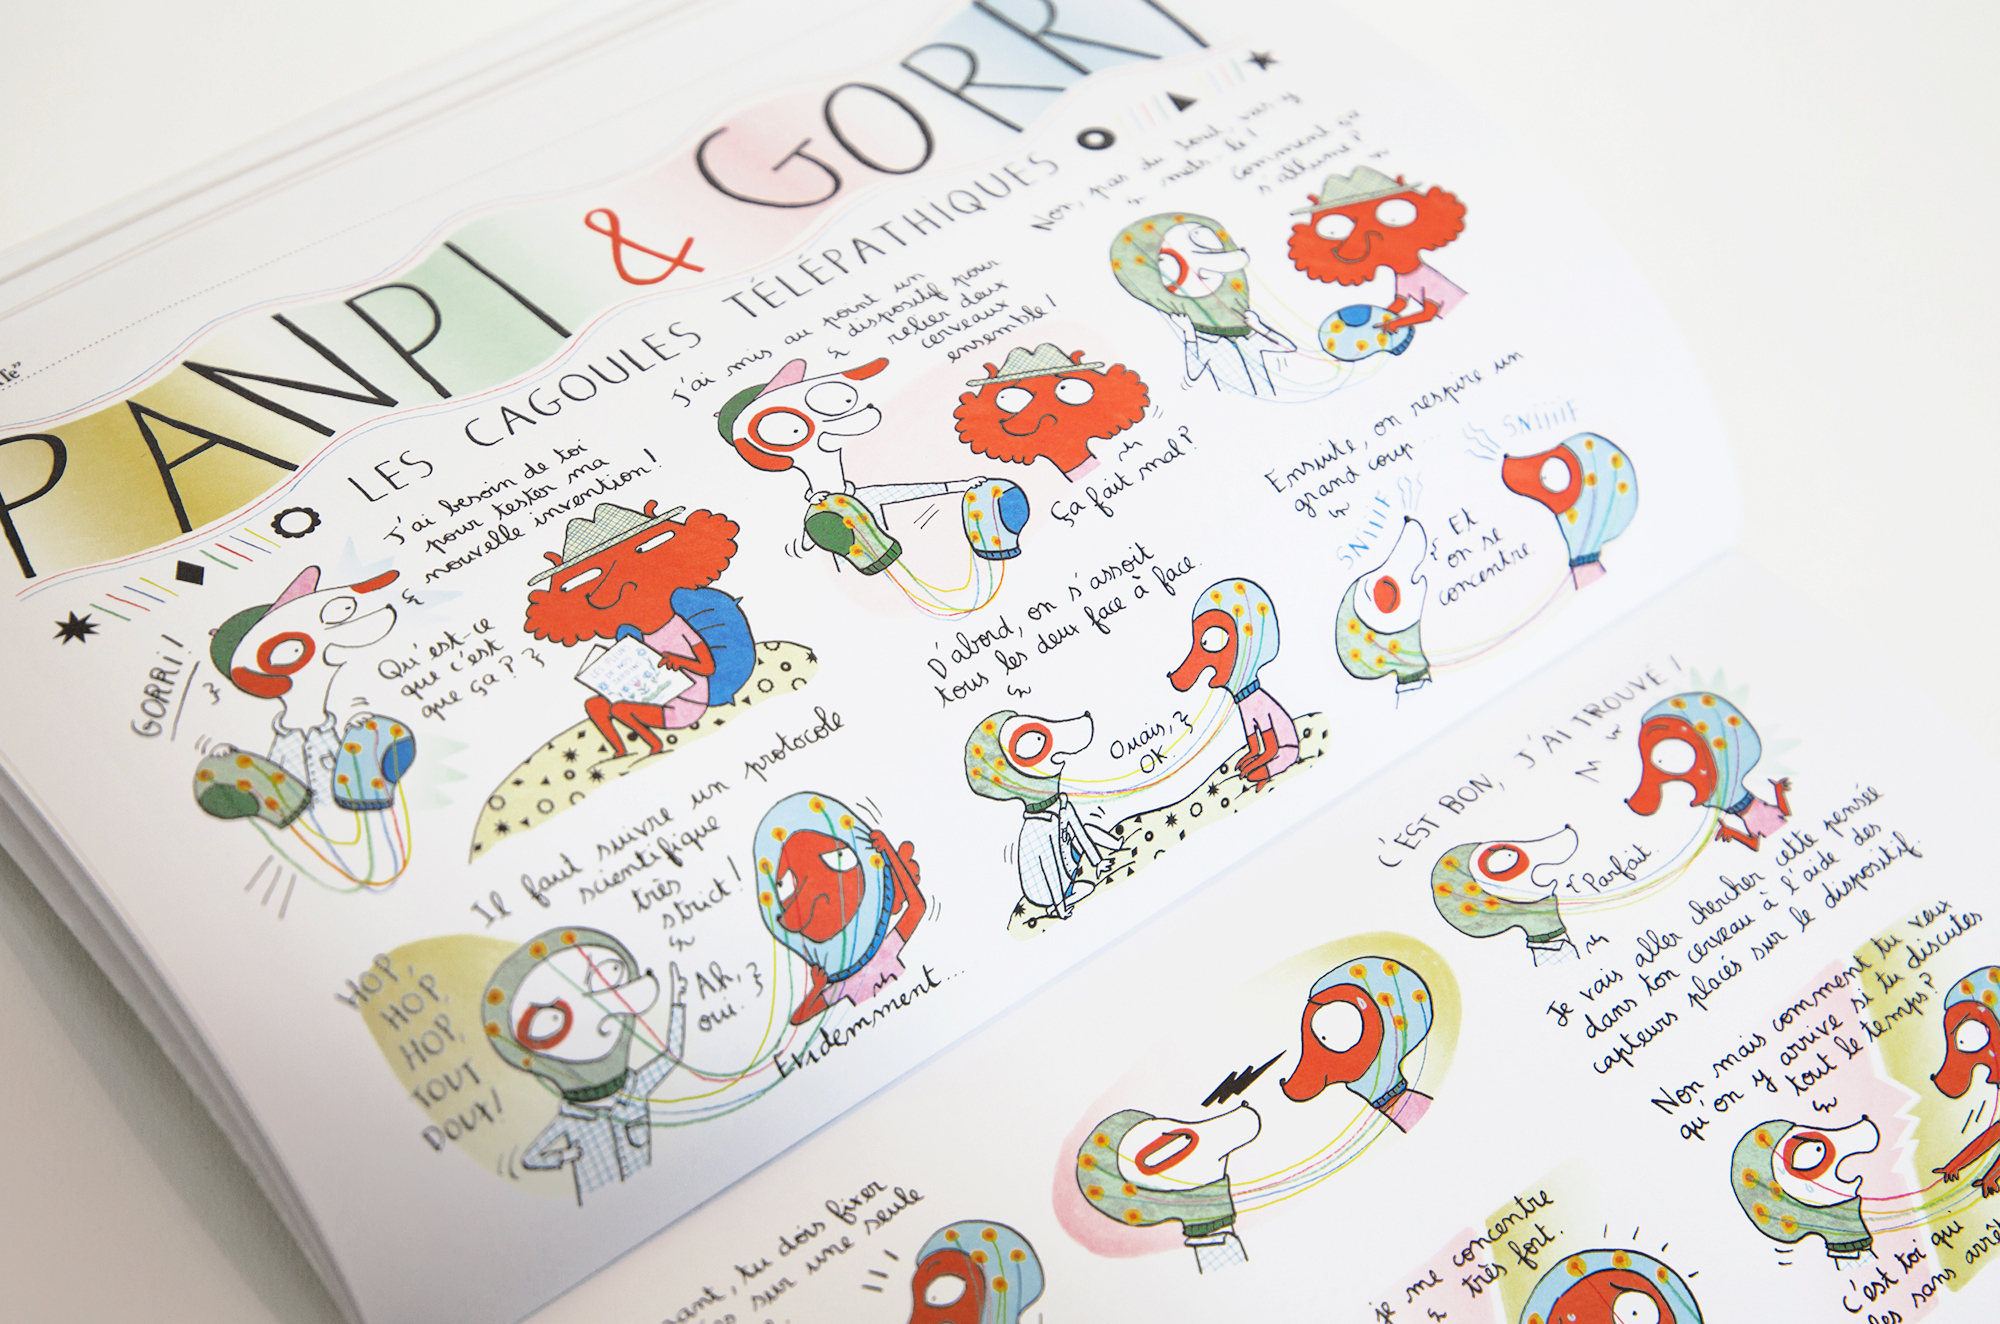 PANPI & GORRI
LES CAGOULES TÉLÉPATHIQUES
GORRI!
J'ai besoin de toi
pour tester ma
nouvelle invention!
Qu'est-ce
que c'est
que ça?
J'ai mis au point un
dispositif pour
relier deux
cerveaux
ensemble!
Ça fait mal?
Non, pas du tout, vas-y
mets-le!
Comment ça
s'allume?
HOP,
HOP,
HOP,
TOUT
DOUX!
Il faut suivre un protocole
scientifique
très
strict!
Ah,
oui.
Évidemment...
D'abord, on s'assoit
tous les deux face à face.
Ouais,
OK.
Ensuite, on respire un
grand coup...
SNIIIF
SNIIIIF
Et
on se
concentre
tu dois fixer
sur une seule
C'EST BON, J'AI TROUVÉ!
Parfait.
Je vais aller chercher cette pensée
dans ton cerveau à l'aide des
capteurs placés sur le dispositif.
je me concentre
très fort.
Non mais comment tu veux
qu'on y arrive si tu discutes
tout le temps?
C'est toi qui
les sans